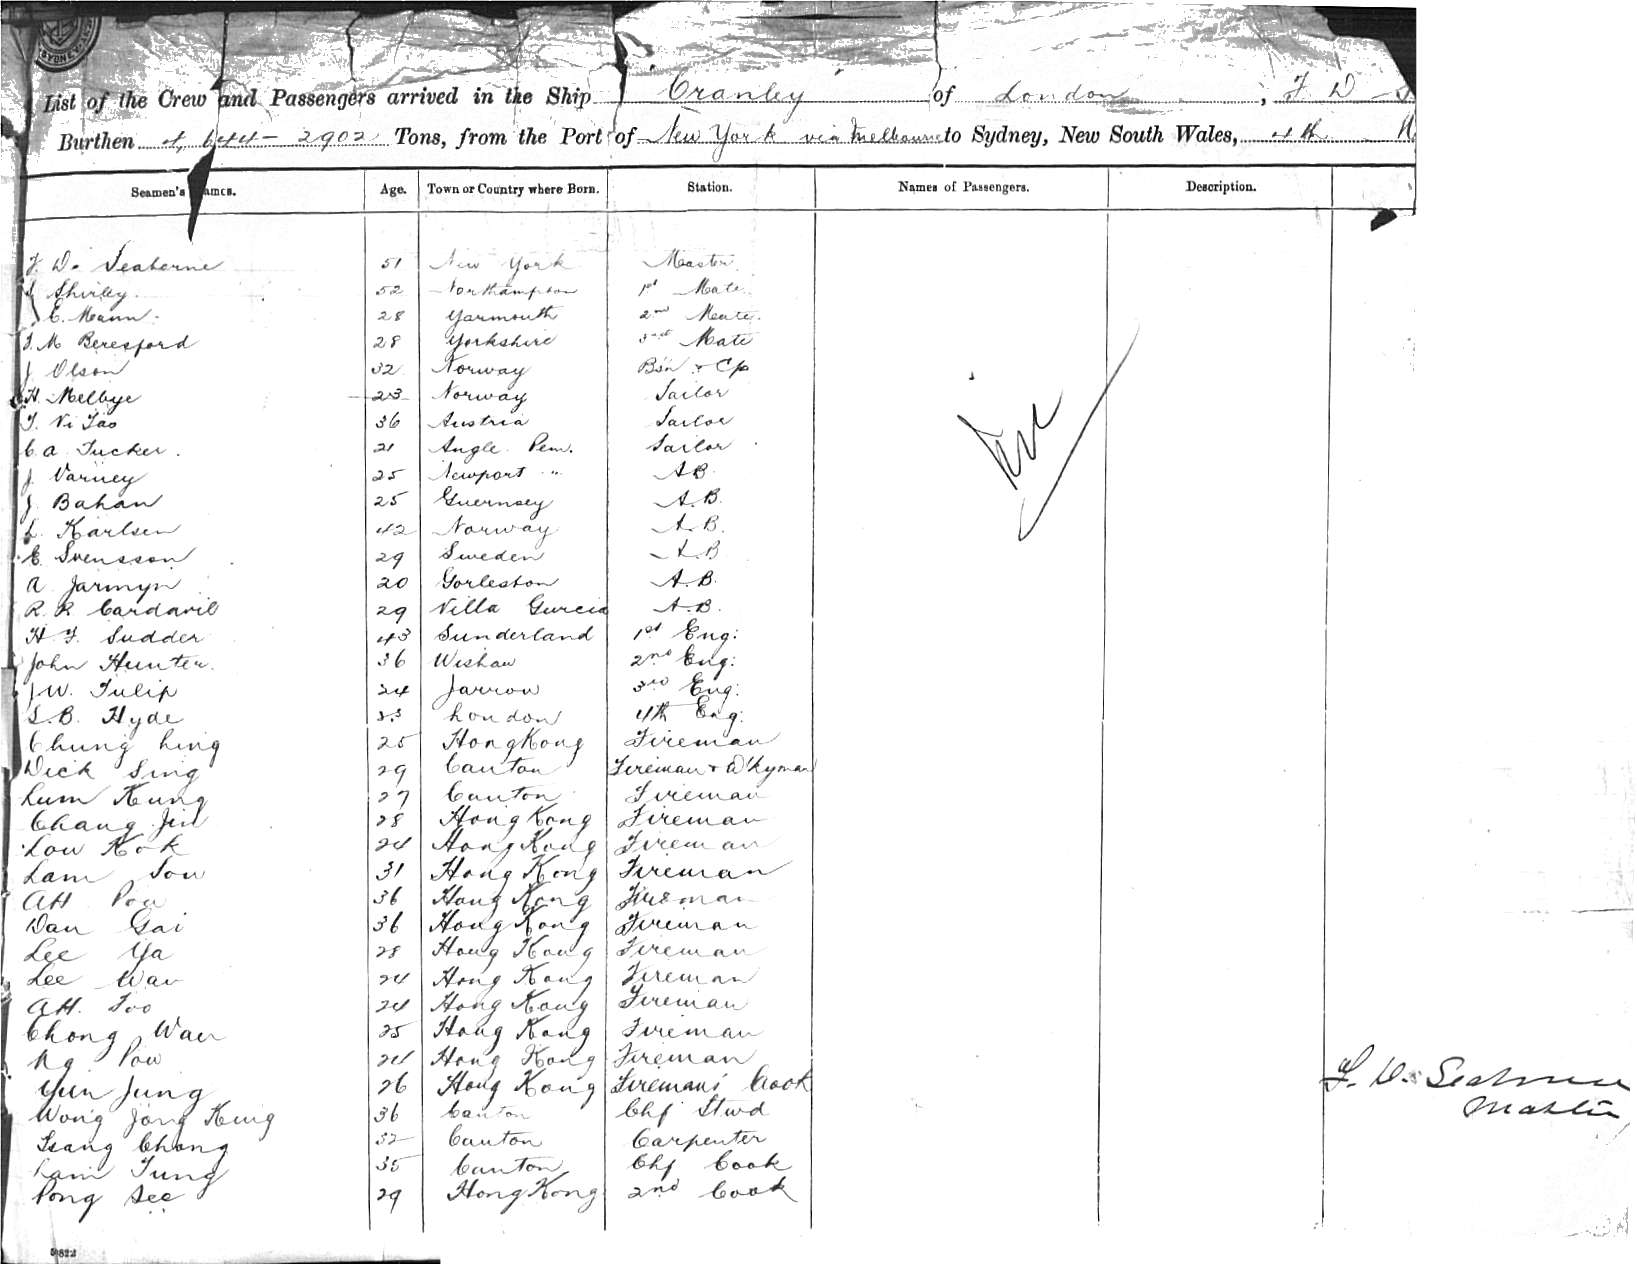 SYDNEY
List of the Crew and Passengers arrived in the Ship Cranley of London, F D
Burthen 4,644 - 2902 Tons, from the Port of New York via Melbourne to Sydney, New South Wales, 4th
Seamen's Names. Age. Town or Country where Born. Station. Names of Passengers. Description.
F. D. Seaborne 51 New York Master
Shirley 52 Northampton 1st Mate
E. Mann 28 Yarmouth 2nd Mate
M Beresford 28 Yorkshire Mate
J Olson 32 Norway Bsn + Cp
H. Melbye 23 Norway Sailor
36 Austria Sailor
C. A. Tucker 21 Angle Pem. Sailor
J Varney 25 Newport " A.B.
J Bahan 25 Guernsey A.B.
L. Karlsen 42 Norway A.B.
E. Svensson 29 Sweden A.B.
A Jarmyn 20 Gorleston A.B.
R. R. 29 Villa Garcia A.B.
H. F. Sudder 43 Sunderland 1st Eng:
John Hunter 36 Wishaw 2nd Eng:
J.W. Tulip 24 Jarrow 3rd Eng:
S.B. Hyde 33 London 4th Eng:
Chung Ling 25 HongKong Fireman
Dick Sing 29 Canton Fireman + D'kyman
Lum Kung 27 Canton Fireman
Chang Jin 28 Hong Kong Fireman
Low Kok 24 Hong Kong Fireman
Lam Sow 31 Hong Kong Fireman
AH Pow 36 Hong Kong Fireman
Dan Gai 36 Hong Kong Fireman
Lee Ya 28 Hong Kong Fireman
Lee Wan 24 Hong Kong Fireman
AH. Foo 24 Hong Kong Fireman
Chong Wan 25 Hong Kong Fireman
Ng Pow 24 Hong Kong Fireman
Yun Jung 26 Hong Kong Fireman's Cook
Wong Jong Kung 36 Canton Chf Stwd
Tsang Chong 32 Canton Carpenter
Lam Tung 35 Canton Chf Cook
Pong See 29 HongKong 2nd Cook
F. D. Seaborne
Master